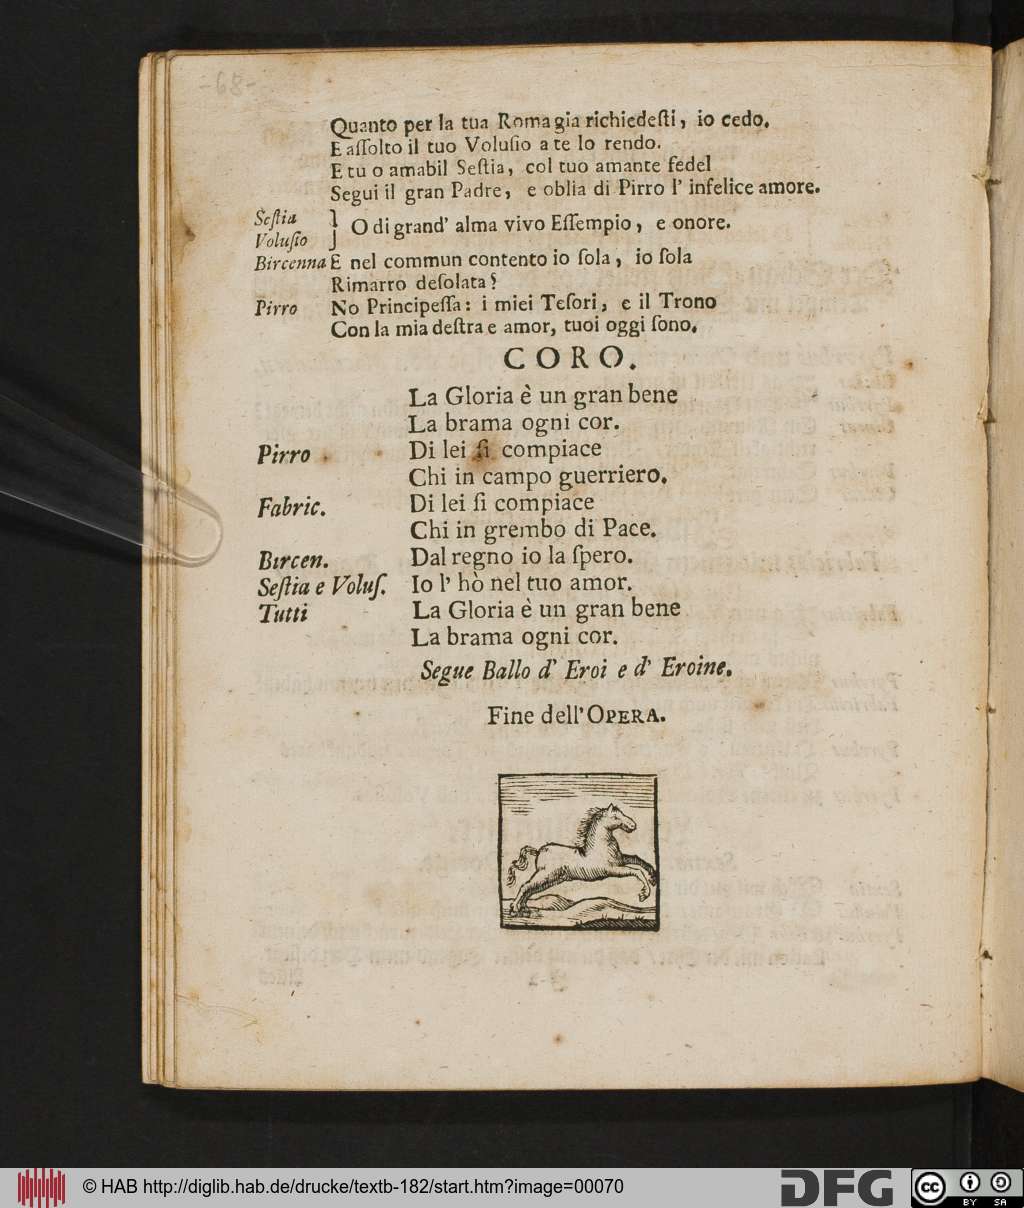 -68-
Quanto per la tua Roma gia richiedeſti, io cedo.
E aſſolto il tuo Voluſio a te lo rendo.
E tu o amabil Seſtia, col tuo amante fedel
Segui il gran Padre, e oblia di Pirro l' infelice amore.
Seſtia
Voluſio } O di grand' alma vivo Eſſempio, e onore.
Bircenna E nel commun contento io ſola, io ſola
Rimarro deſolata?
Pirro No Principeſſa: i miei Teſori, e il Trono
Con la mia deſtra e amor, tuoi oggi ſono.
CORO.
La Gloria è un gran bene
La brama ogni cor.
Pirro Di lei ſi compiace
Chi in campo guerriero.
Fabric. Di lei ſi compiace
Chi in grembo di Pace.
Bircen. Dal regno io la ſpero.
Seſtia e Voluſ. Io l' hò nel tuo amor.
Tutti La Gloria è un gran bene
La brama ogni cor.
Segue Ballo d' Eroi e d' Eroine.
Fine dell' OPERA.
© HAB http://diglib.hab.de/drucke/textb-182/start.htm?image=00070
DFG
cc BY SA